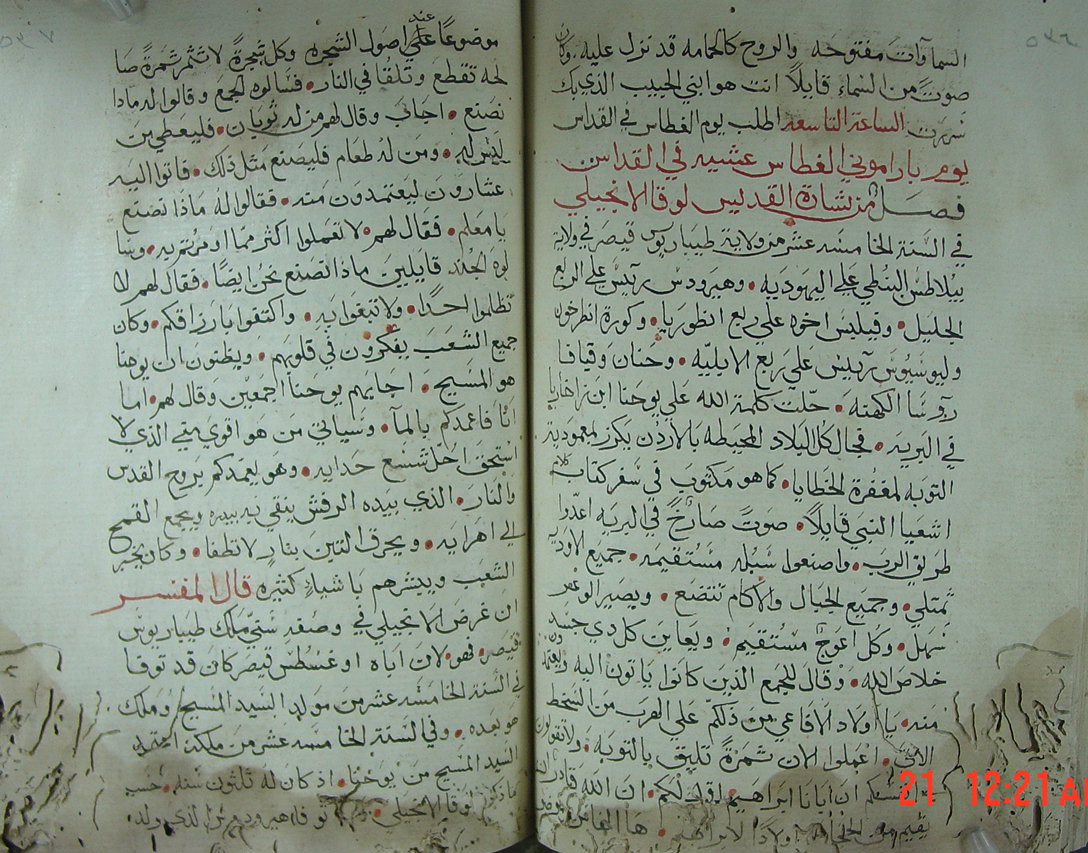 السماوات مفتوحه والروح كالحمامه قد نزل عليه وكان
صوتٌ من السماء قايلاً انت هو ابني الحبيب الذي بك
سررت الساعة التاسعه اطلب يوم الغطاس في القداس
يوم باراموني الغطاس عشيه في القداس
فصل من بشارة القديس لوقا الانجيلي
في السنة الخامسه عشر من ولاية طيباريوس قيصر في ولاية
بيلاطس البنطي على اليهوديه وهيرودس رييس على الربع
الجليل وفيلبس اخوه على ربع انطوريا وكورة انطرخون
وليوسيوس رييس على ربع الابليه وحنان وقيافا
روسا الكهنه حلت كلمة الله على يوحنا ابن زاخاريا
في البريه فجال كل البلاد المحيطه بالاردن يكرز لمعمودية
التوبه لمغفرة الخطايا كما هو مكتوب في سفر كتاب كلام
اشعيا النبي قايلاً صوتٌ صارخٌ في البريه اعدوا
طريق الرب واصنعوا سبله مستقيمه جميع الاوديه
تمتلي وجميع الجبال والاكام تتضع ويصير الوعر
سهل وكل اعوج مستقيم ويعاين كل ذي جسد
خلاص الله وقال للجمع الذين كانوا ياتون اليه
منه يا اولاد الافاعي من دلكم على الهرب من السخط
الاتي اعملوا الان ثمرةً تليق بالتوبه ولا تقولون
ان ابانا ابراهيم اقول لكم ان الله قادر
يقيم من اولاداً لابراهيم ها الفاس
21 12:21 A
موضوعاً على عند اصول الشجره وكل شجرةً لا تثمر ثمرةً صا
لحه تقطع وتلقا في النار فسالوه الجمع وقالوا له ماذا
نصنع اجاب وقال لهم من له ثوبان فليعطي من
ليس له ومن له طعام فليصنع مثل ذلك فاتوا اليه
عشارون ليعتمدون منه فقالوا له ماذا نصنع
يا معلم فقال لهم لا تعملوا اكثر مما اومرتم به وسا
لوه الجند قايلين ماذا نصنع نحن ايضاً فقال لهم لا
تظلموا احداً ولا تبغوا به واكتفوا بارزاقكم وكان
جميع الشعب يفكرون في قلوبهم ويظنون ان يوحنا
هو المسيح اجابهم يوحنا اجمعين وقال لهم اما
انا فاعمدكم بالما وسياتي من هو اقوى مني الذي لا
استحق احل شسع حدايه وهو يعمدكم بروح القدس
والنار الذي بيده الرفش ينقي به بيدره ويجمع القمح
الى اهرايه ويحرق التبن بنارٍ لا تطفا وكان يخبر
الشعب ويبشرهم باشياءٍ كثيره قال المفسر
ان غرض الانجيلي في وصفه سني ملك طيباريوس
قيصر فهو لان اباه اوغسطس قيصر كان قد توفا
في السنة الخامسه عشر من مولد السيد المسيح وملك
هو بعده وفي السنة الخامسه عشر من ملكه اعتمد
السيد المسيح من يوحنا اذ كان له ثلثون سنه حسب
ما ذكر لوقا الانجيلي هيرودس الذي ولد